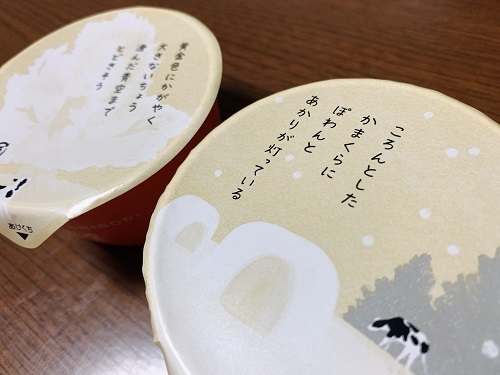 黄金色にかがやく
大きないちょう
澄んだ青空まで
とどきそう
あけくち
ころんとした
かまくらに
ぽわんと
あかりが灯っている